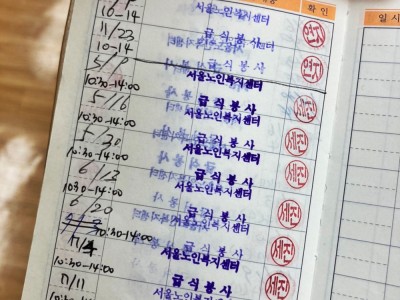 확인
일시
10-14
서울노인복지센터
11/23
급식봉사
연지
10-14
서울노인복지센터
5/9
급식봉사
연지
10:30-14:00
서울노인복지센터
5/16
급식봉사
세진
10:30-14:00
서울노인복지센터
5/30
급식봉사
세진
10:30-14:00
서울노인복지센터
6/13
급식봉사
세진
10:30-14:00
서울노인복지센터
6/20
급식봉사
세진
10:30-14:00
서울노인복지센터
7/4
급식봉사
세진
10:30-14:00
서울노인복지센터
7/11
급식봉사
세진
서울노인복지센터